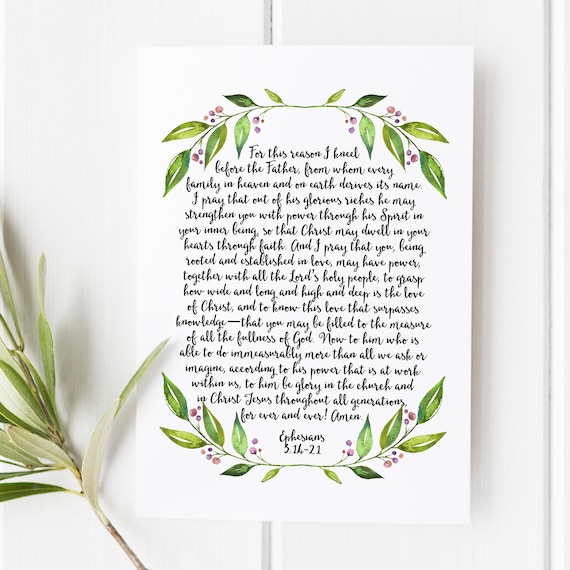 For this reason I kneel
before the Father, from whom every
family in heaven and on earth derives its name.
I pray that out of his glorious riches he may
strengthen you with power through his Spirit in
your inner being, so that Christ may dwell in your
hearts through faith. And I pray that you, being
rooted and established in love, may have power,
together with all the Lord's holy people, to grasp
how wide and long and high and deep is the love
of Christ, and to know this love that surpasses
knowledge—that you may be filled to the measure
of all the fullness of God. Now to him who is
able to do immeasurably more than all we ask or
imagine, according to his power that is at work
within us, to him be glory in the church and
in Christ Jesus throughout all generations,
for ever and ever! Amen.
Ephesians
3.14-21